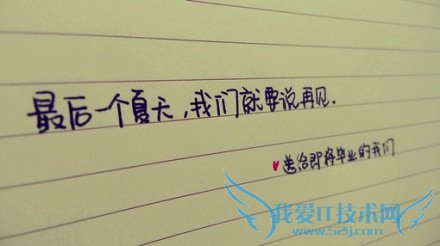 最后一个夏天,我们就要说再见.
♥送给即将毕业的我们
我爱IT技术网
www.52ij.com